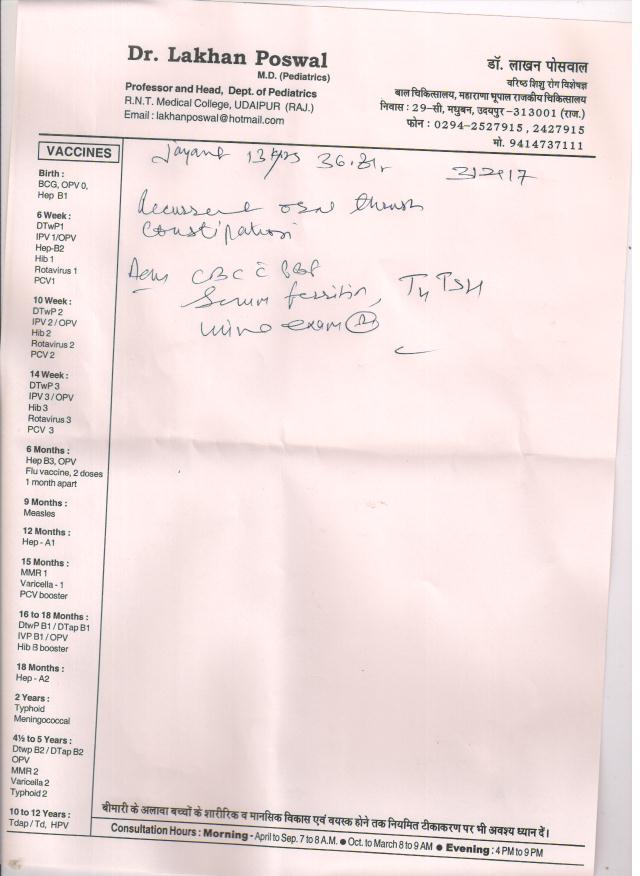 Dr. Lakhan Poswal
M.D. (Pediatrics)
Professor and Head, Dept. of Pediatrics
R.N.T. Medical College, UDAIPUR (RAJ.)
Email : lakhanposwal@hotmail.com
डॉ. लाखन पोसवाल
वरिष्ठ शिशु रोग विशेषज्ञ
बाल चिकित्सालय, महाराणा भूपाल राजकीय चिकित्सालय
निवास : 29-सी, मधुबन, उदयपुर -313001 (राज.)
फोन : 0294-2527915, 2427915
मो. 9414737111
Jayant 13 yrs 36.
Recurrent oral thrush
Constipation
Adv CBC c PBF
Serum ferritin, T4 TSH
urine exam (R)
VACCINES
Birth :
BCG, OPV 0,
Hep B1
6 Week :
DTwP1
IPV 1/OPV
Hep-B2
Hib 1
Rotavirus 1
PCV1
10 Week :
DTwP 2
IPV 2 / OPV
Hib 2
Rotavirus 2
PCV 2
14 Week :
DTwP 3
IPV 3 / OPV
Hib 3
Rotavirus 3
PCV 3
6 Months :
Hep B3, OPV
Flu vaccine, 2 doses
1 month apart
9 Months :
Measles
12 Months :
Hep - A1
15 Months :
MMR 1
Varicella - 1
PCV booster
16 to 18 Months :
DtwP B1 / DTap B1
IVP B1 / OPV
Hib B booster
18 Months :
Hep - A2
2 Years :
Typhoid
Meningococcal
4½ to 5 Years :
Dtwp B2 / DTap B2
OPV
MMR 2
Varicella 2
Typhoid 2
10 to 12 Years :
Tdap / Td, HPV
बीमारी के अलावा बच्चों के शारीरिक व मानसिक विकास एवं वयस्क होने तक नियमित टीकाकरण पर भी अवश्य ध्यान दें।
Consultation Hours : Morning - April to Sep. 7 to 8 A.M. ● Oct. to March 8 to 9 AM ● Evening : 4 PM to 9 PM